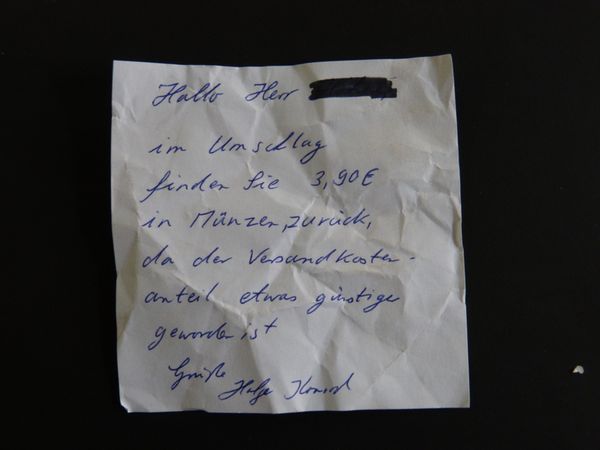 Hallo Herr
im Umschlag
finden Sie 3,90€
in Münzen, zurück,
da der Versandkosten-
anteil etwas günstiger
geworden ist
Grüße
Helge